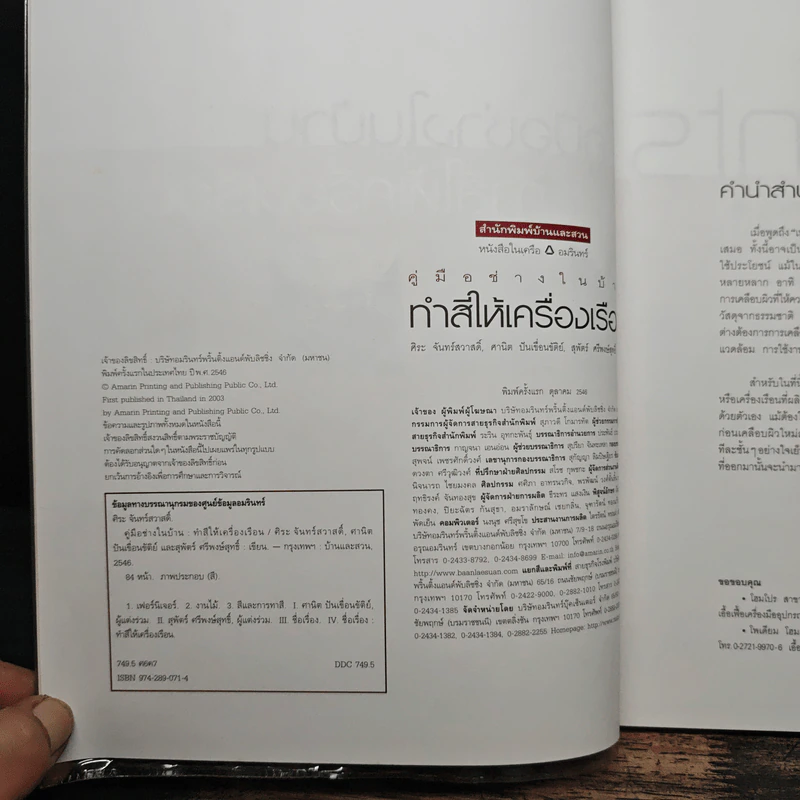 สำนักพิมพ์บ้านและสวน
หนังสือในเครือ อมรินทร์
คู่มือช่างในบ้า
ทำสีให้เครื่องเรือ
ศิระ จันทร์สวาสดิ์, ศานิต ปันเขื่อนขัติย์, สุพัตร์ ศรีพงษ์สุทธิ์
พิมพ์ครั้งแรก ตุลาคม 2546
เจ้าของลิขสิทธิ์ : บริษัทอมรินทร์พริ้นติ้งแอนด์พับลิชชิ่ง จำกัด (มหาชน)
พิมพ์ครั้งแรกในประเทศไทย ปี พ.ศ. 2546
© Amarin Printing and Publishing Public Co., Ltd.
First published in Thailand in 2003
by Amarin Printing and Publishing Public Co., Ltd.
ข้อความและรูปภาพทั้งหมดในหนังสือนี้
เจ้าของลิขสิทธิ์สงวนสิทธิ์ตามพระราชบัญญัติ
การคัดลอกส่วนใดๆ ในหนังสือนี้ไปเผยแพร่ในทุกรูปแบบ
ต้องได้รับอนุญาตจากเจ้าของลิขสิทธิ์ก่อน
ยกเว้นการอ้างอิงเพื่อการศึกษาและการวิจารณ์
ข้อมูลทางบรรณานุกรมของศูนย์ข้อมูลอมรินทร์
ศิระ จันทร์สวาสดิ์.
คู่มือช่างในบ้าน : ทำสีให้เครื่องเรือน / ศิระ จันทร์สวาสดิ์, ศานิต
ปันเขื่อนขัติย์ และสุพัตร์ ศรีพงษ์สุทธิ์ : เขียน. — กรุงเทพฯ : บ้านและสวน,
2546.
84 หน้า. ภาพประกอบ (สี)
1. เฟอร์นิเจอร์. 2. งานไม้. 3. สีและการทาสี. I. ศานิต ปันเขื่อนขัติย์,
ผู้แต่งร่วม. II. สุพัตร์ ศรีพงษ์สุทธิ์, ผู้แต่งร่วม. III. ชื่อเรื่อง. IV. ชื่อเรื่อง :
ทำสีให้เครื่องเรือน.
749.5 ศ6ค7 DDC 749.5
ISBN 974-289-071-4
เจ้าของ ผู้พิมพ์ผู้โฆษณา บริษัทอมรินทร์พริ้นติ้งแอนด์พับลิชชิ่ง จำกัด
กรรมการผู้จัดการสายธุรกิจสำนักพิมพ์ สุภาวดี โกมารทัต ผู้ช่วย
สายธุรกิจสำนักพิมพ์ ระริน อุทกะพันธุ์ บรรณาธิการอำนวยการ
บรรณาธิการ กาญจนา เอนอ่อน ผู้ช่วยบรรณาธิการ สุปรียา
สุพจน์ เพชรศักดิ์วงศ์ เลขานุการกองบรรณาธิการ สุกัญญา
ดวงตา ศรีวุฒิวงศ์ ที่ปรึกษาฝ่ายศิลปกรรม สโรช กุพชกะ ผู้จัดการ
นิจจารถ ไชยมงคล ศิลปกรรม คศิภา อาทรนวกิจ,
ฤทธิรงค์ จันทองสุข ผู้จัดการฝ่ายการผลิต ธีระพร แสงเงิน พิสูจน์อักษร
ทองคง, ปิยะฉัตร กันสุธา, อมราลักษณ์ เชยกลิ่น,
พัดเย็น คอมพิวเตอร์ นงนุช ศรีสุขโข ประสานงานการผลิต
บริษัทอมรินทร์พริ้นติ้งแอนด์พับลิชชิ่ง จำกัด (มหาชน) 7/9-18 ถนน
อรุณอมรินทร์ เขตบางกอกน้อย กรุงเทพฯ 10700 โทรศัพท์
โทรสาร 0-2433-8792, 0-2434-8699 E-mail: info@amarin.co.th
http://www.baanlaesuan.com แยกสีและพิมพ์ที่ สายธุรกิจโรงพิมพ์
พริ้นติ้งแอนด์พับลิชชิ่ง จำกัด (มหาชน) 65/16 ถนนชัยพฤกษ์
กรุงเทพฯ 10170 โทรศัพท์ 0-2422-9000, 0-2882-1010 โทรสาร
0-2434-1385 จัดจำหน่ายโดย บริษัทอมรินทร์บุ๊คเซ็นเตอร์ จำกัด
ชัยพฤกษ์ (บรมราชชนนี) เขตตลิ่งชัน กรุงเทพฯ 10170 โทรศัพท์
0-2434-1382, 0-2434-1384, 0-2882-2255 Homepage: http://www
คำนำสำน
เมื่อพูดถึง
เสมอ ทั้งนี้อาจเป็น
ใช้ประโยชน์ แม้ใน
หลายหลาก อาทิ
การเคลือบผิวที่ให้คว
วัสดุจากธรรมชาติ
ต่างต้องการการเคลือ
แวดล้อม การใช้งาน
สำหรับในที่นี้
หรือเครื่องเรือนที่ผลิ
ด้วยตัวเอง แม้ต้องใ
ก่อนเคลือบผิวใหม่
ทีละชั้นๆ อย่างใจเย็
ที่ออกมานั้นจะนำมา
ขอขอบคุณ
• โฮมโปร สาขา
เอื้อเฟื้อเครื่องมืออุปกร
• โพเดียม โฮม
โทร. 0-2721-9970-8 เอื้อ